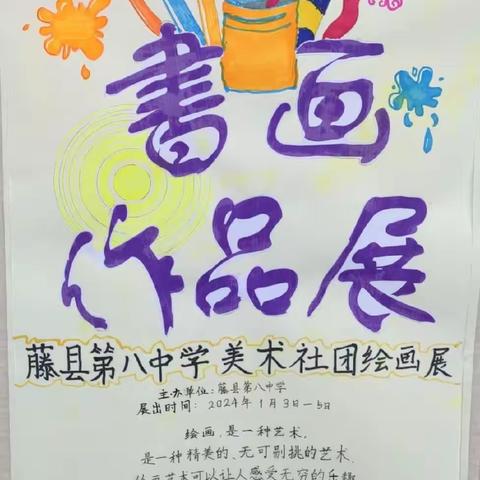 書画
作品展
藤县第八中学美术社团绘画展
主办单位:藤县第八中学
展出时间:2024年1月3日—5日
绘画,是一种艺术,
是一种精美的、无可剔挑的艺术.
绘画艺术可以让人感受无穷的乐趣